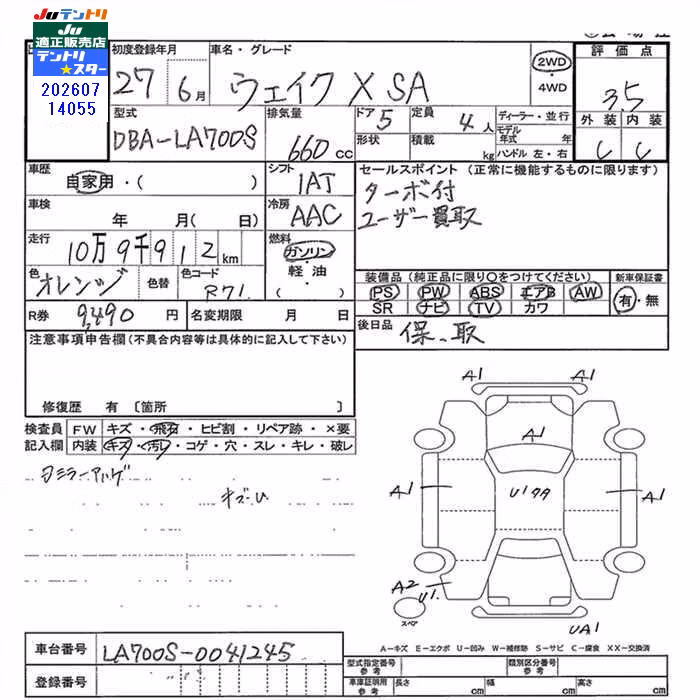 Juテントリ
Ju
適正販売店
テントリ
★スター
202607
14055
初度登録年月 車名・グレード 評価点
27 6月 ウェイク X SA 2WD ・ 4WD 3.5
型式 排気量 ドア 5 定員 4人 ディーラー・並行 外装 内装
DBA-LA700S 660cc 形状 積載 kg モデル年式 年 ハンドル 左・右 C C
車歴 シフト セールスポイント (正常に機能するものに限ります)
自家用・( ) 1AT ターボ付
車検 年 月(日) 冷房 AAC ユーザー買取
走行 10万9千912km 燃料 ガソリン・軽油・( )
色 オレンジ 色替 色コード R71
装備品 (純正品に限り〇をつけてください) 新車保証書
PS PW ABS エアB AW 有・無
SR ナビ TV カワ
R券 9,490円 名変期限 月 日 後日品 保、取
注意事項申告欄(不具合内容等は具体的に記入して下さい)
修復歴 有〔箇所 〕
検査員 FW キズ・飛石・ヒビ割・リペア跡・×要
記入欄 内装 キズ・汚レ・コゲ・穴・スレ・キレ・破レ
A1
A1
A1
A1
A1
A2
U1
スペア
UA1
A-キズ E-エクボ U-凹み W-補修跡 S-サビ C-腐食 XX-交換済
車台番号 LA700S-0041245
登録番号
型式指定番号 参考 類別区分番号 参考
車庫証明用 参考 長さ cm 幅 cm 高さ cm